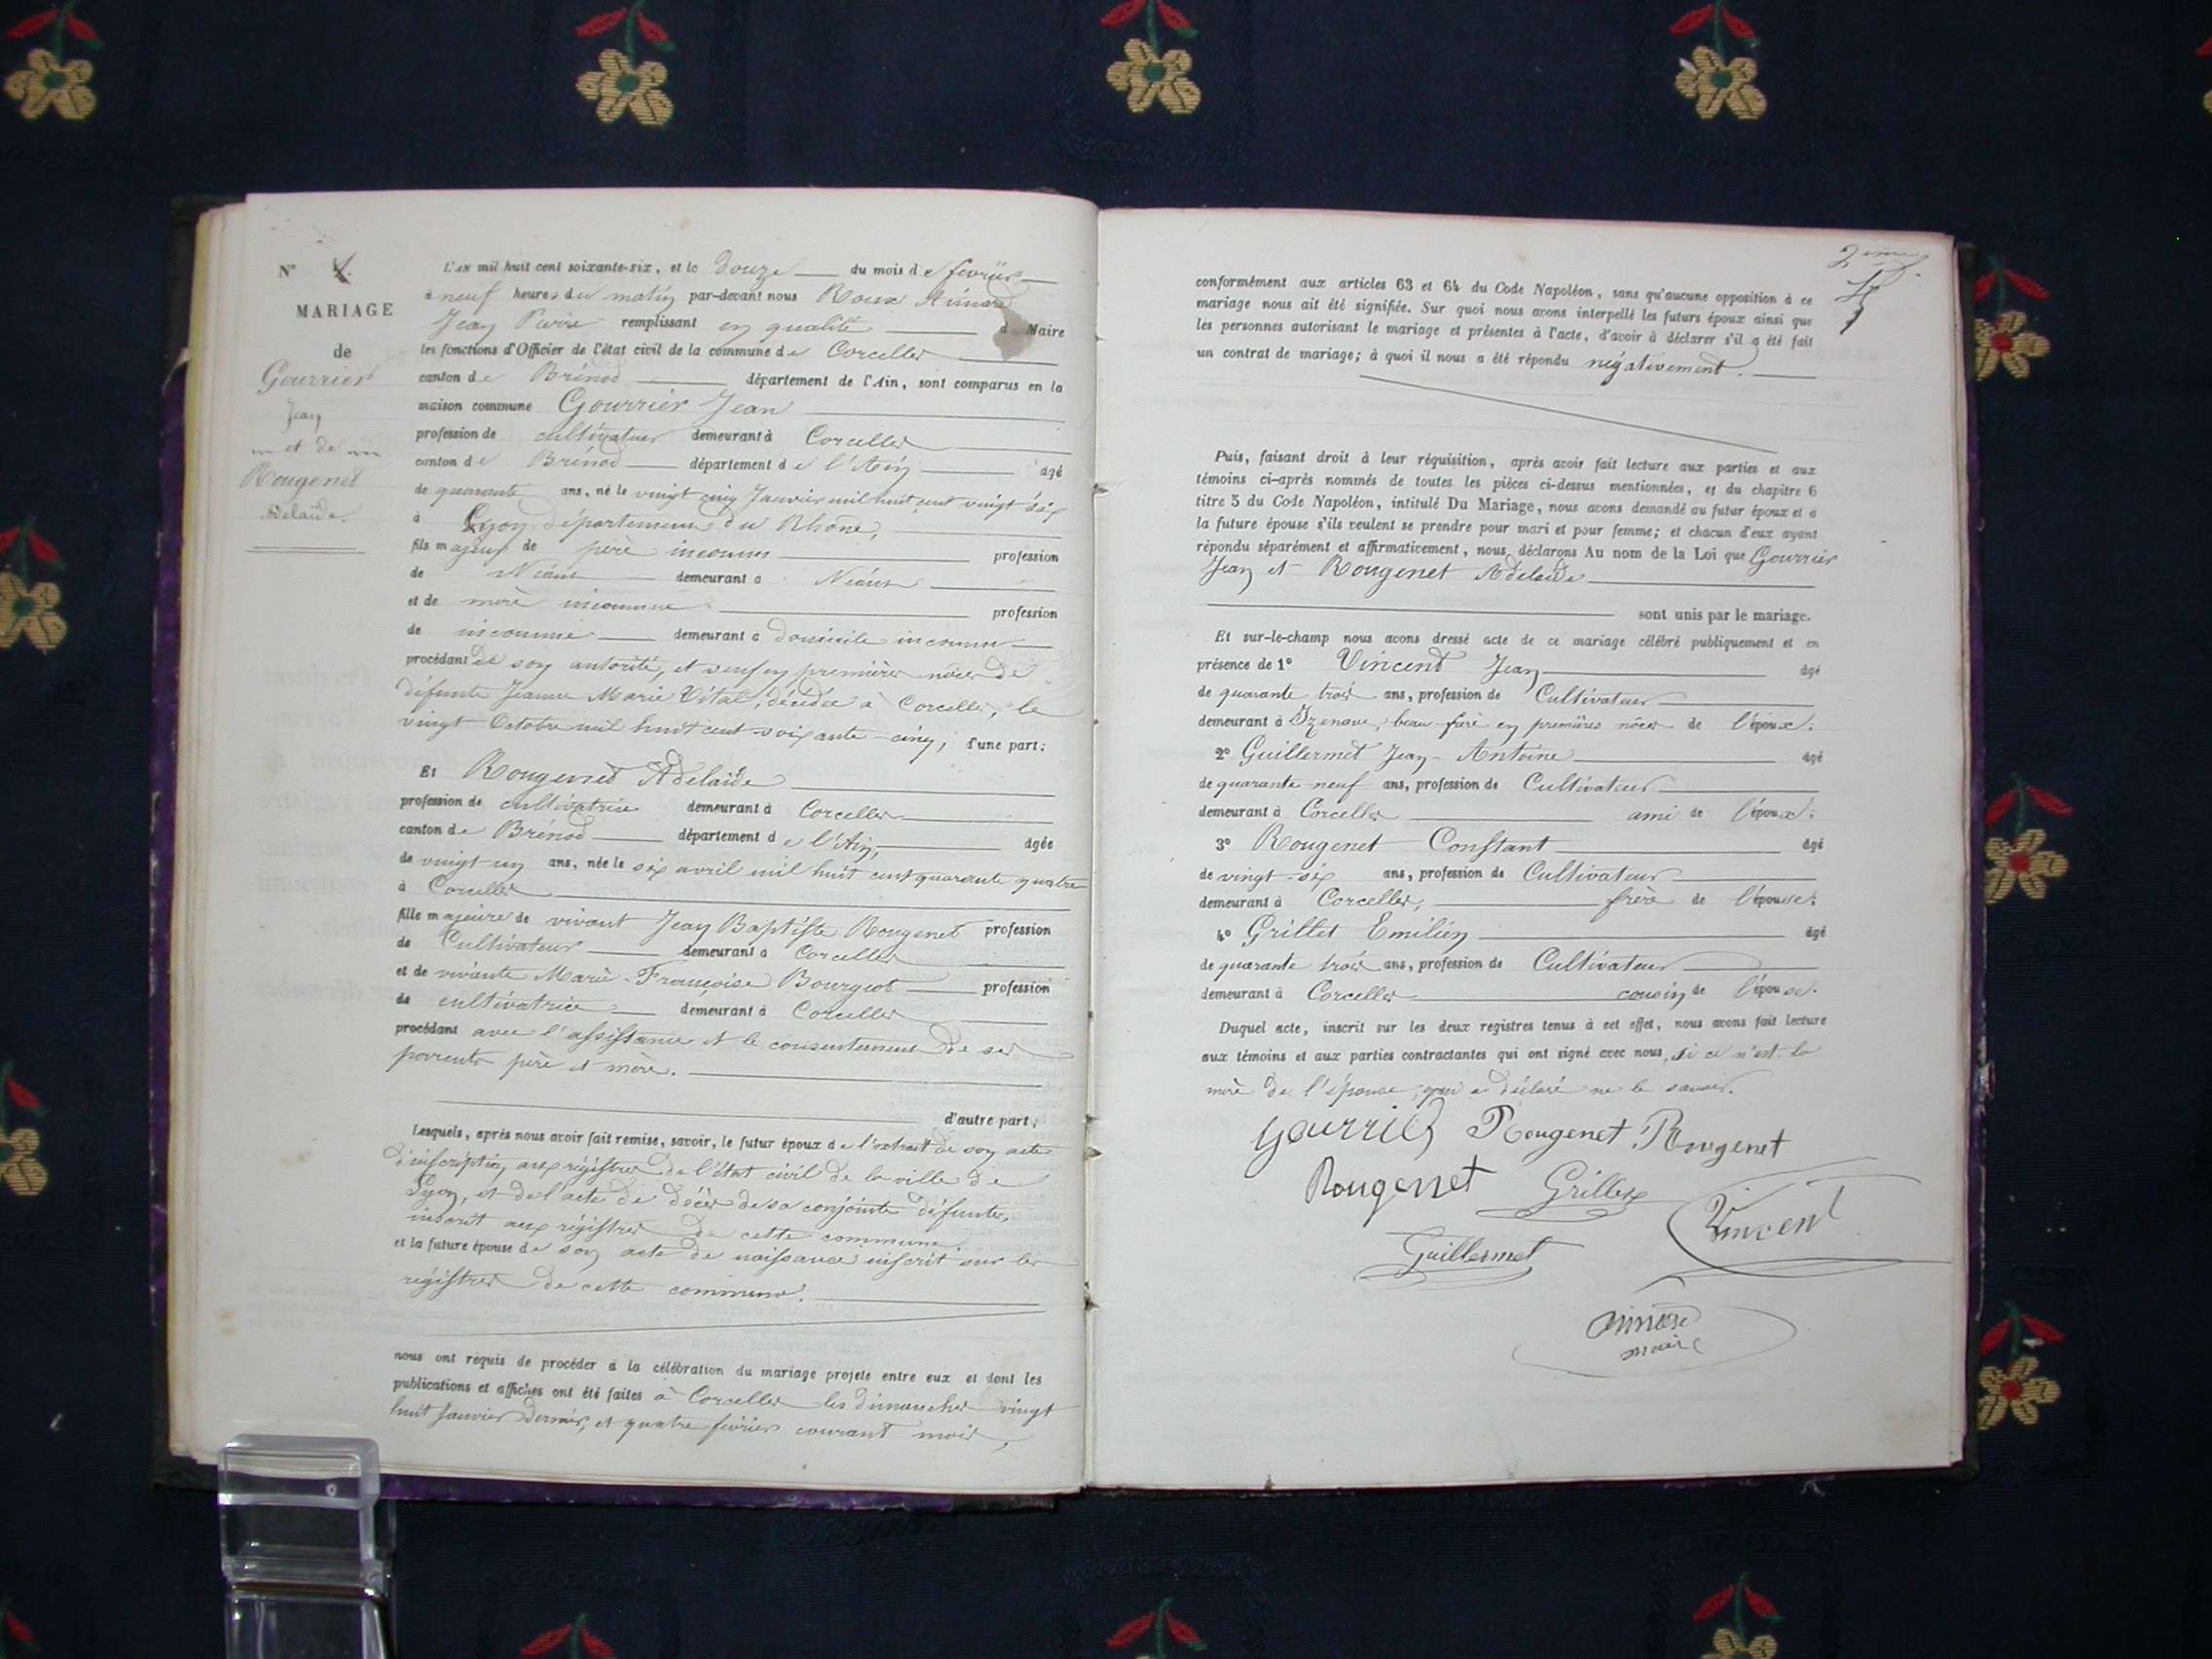 N° 4.
MARIAGE
de
Gourrier
Jean
et de
Rougenet
Adelaïde.
L'an mil huit cent soixante-six, et le douze du mois de février
à neuf heures du matin par-devant nous Roux Aimard
Jean Pierre remplissant en qualité d Maire
les fonctions d'Officier de l'état civil de la commune de Corcelles
canton de Brénod département de l'Ain, sont comparus en la
maison commune Gourrier Jean
profession de cultivateur demeurant à Corcelles
canton de Brénod département de l'Ain âgé
de quarante ans, né le vingt cinq Janvier mil huit cent vingt six
à Lyon département du Rhône,
fils majeur de père inconnu profession
de Néant demeurant à Néant
et de mère inconnue profession
de inconnue demeurant à domicile inconnu
procédant de son autorité, et veuf en premières nôces de
défunte Jeanne Marie Vital, décédée à Corcelles, le
vingt Octobre mil huit cent soixante-cinq, d'une part;
Et Rougenet Adelaïde
profession de cultivatrice demeurant à Corcelles
canton de Brénod département de l'Ain, âgée
de vingt-un ans, née le six avril mil huit cent quarante quatre
à Corcelles
fille majeure de vivant Jean Baptiste Rougenet profession
de Cultivateur demeurant à Corcelles
et de vivante Marie-Françoise Bourgeot profession
de cultivatrice demeurant à Corcelles
procédant avec l'assistance et le consentement de ses
parents père et mère.
d'autre part;
Lesquels, après nous avoir fait remise, savoir, le futur époux de l'extrait de son acte
d'inscription aux régistres de l'état civil de la ville de
Lyon, et de l'acte de décès de sa conjointe défunte,
inscrit aux régistres de cette commune
et la future épouse de son acte de naissance inscrit sur les
régistres de cette commune.
nous ont requis de procéder à la célébration du mariage projeté entre eux et dont les
publications et affiches ont été faites à Corcelles les dimanches vingt
huit Janvier dernier, et quatre février courant mois,
2ème
conformément aux articles 63 et 64 du Code Napoléon, sans qu'aucune opposition à ce
mariage nous ait été signifiée. Sur quoi nous avons interpellé les futurs époux ainsi que
les personnes autorisant le mariage et présentes à l'acte, d'avoir à déclarer s'il a été fait
un contrat de mariage; à quoi il nous a été répondu négativement.
Puis, faisant droit à leur réquisition, après avoir fait lecture aux parties et aux
témoins ci-après nommés de toutes les pièces ci-dessus mentionnées, et du chapitre 6
titre 5 du Code Napoléon, intitulé Du Mariage, nous avons demandé au futur époux et à
la future épouse s'ils veulent se prendre pour mari et pour femme; et chacun d'eux ayant
répondu séparément et affirmativement, nous déclarons Au nom de la Loi que Gourrier
Jean et Rougenet Adelaïde
sont unis par le mariage.
Et sur-le-champ nous avons dressé acte de ce mariage célébré publiquement et en
présence de 1° Vincent Jean âgé
de quarante trois ans, profession de Cultivateur
demeurant à Izenave, beau-frère en premières nôces de l'époux;
2° Guillermet Jean-Antoine âgé
de quarante-neuf ans, profession de Cultivateur
demeurant à Corcelles ami de l'époux;
3° Rougenet Constant âgé
de vingt-six ans, profession de Cultivateur
demeurant à Corcelles, frère de l'épouse;
4° Grillet Emilien âgé
de quarante trois ans, profession de Cultivateur
demeurant à Corcelles cousin de l'épouse.
Duquel acte, inscrit sur les deux registres tenus à cet effet, nous avons fait lecture
aux témoins et aux parties contractantes qui ont signé avec nous, si ce n'est la
mère de l'épouse, qui a déclaré ne le savoir.
Gourrier Rougenet Rougenet
Rougenet Grillet
Vincent
Guillermet
Aimard
maire